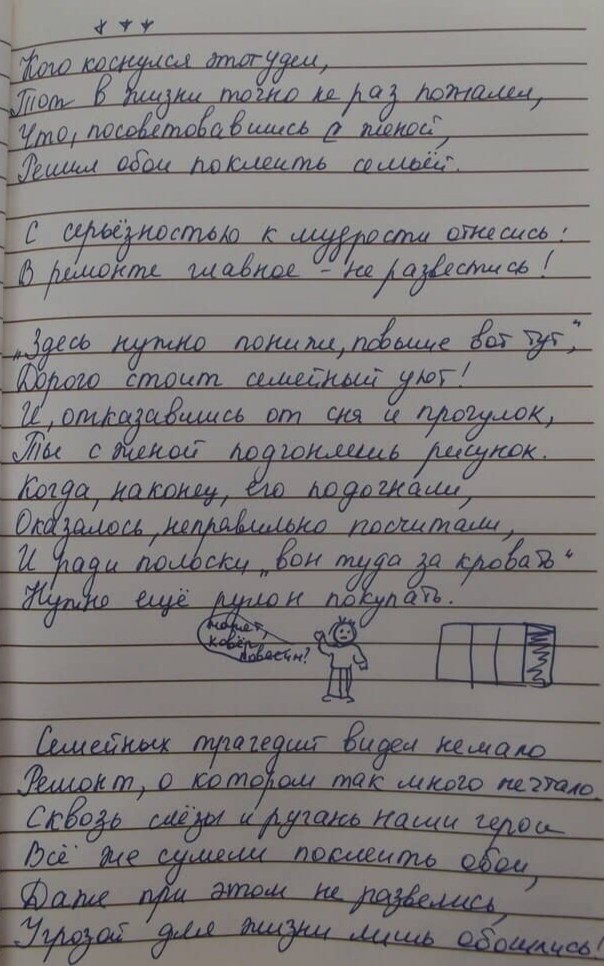 * * *
Кого коснулся этот удел,
Тот в жизни точно не раз пожалел,
Что, посоветовавшись с женой,
Решил обои поклеить семьёй.
С серьёзностью к мудрости отнесись:
В ремонте главное - не развестись!
„Здесь нужно пониже, повыше вот тут“,
Дорого стоит семейный уют!
И, отказавшись от сна и прогулок,
Ты с женой подгоняешь рисунок.
Когда, наконец, его подогнали,
Оказалось, неправильно посчитали,
И ради полоски „вон туда за кровать“
Нужно ещё рулон покупать.
может,
ковёр
повесим?
Семейных трагедий видел немало
Ремонт, о котором так много мечтало.
Сквозь слёзы и ругань наши герои
Всё же сумели поклеить обои,
Даже при этом не развелись,
Угрозой для жизни лишь обошлись!